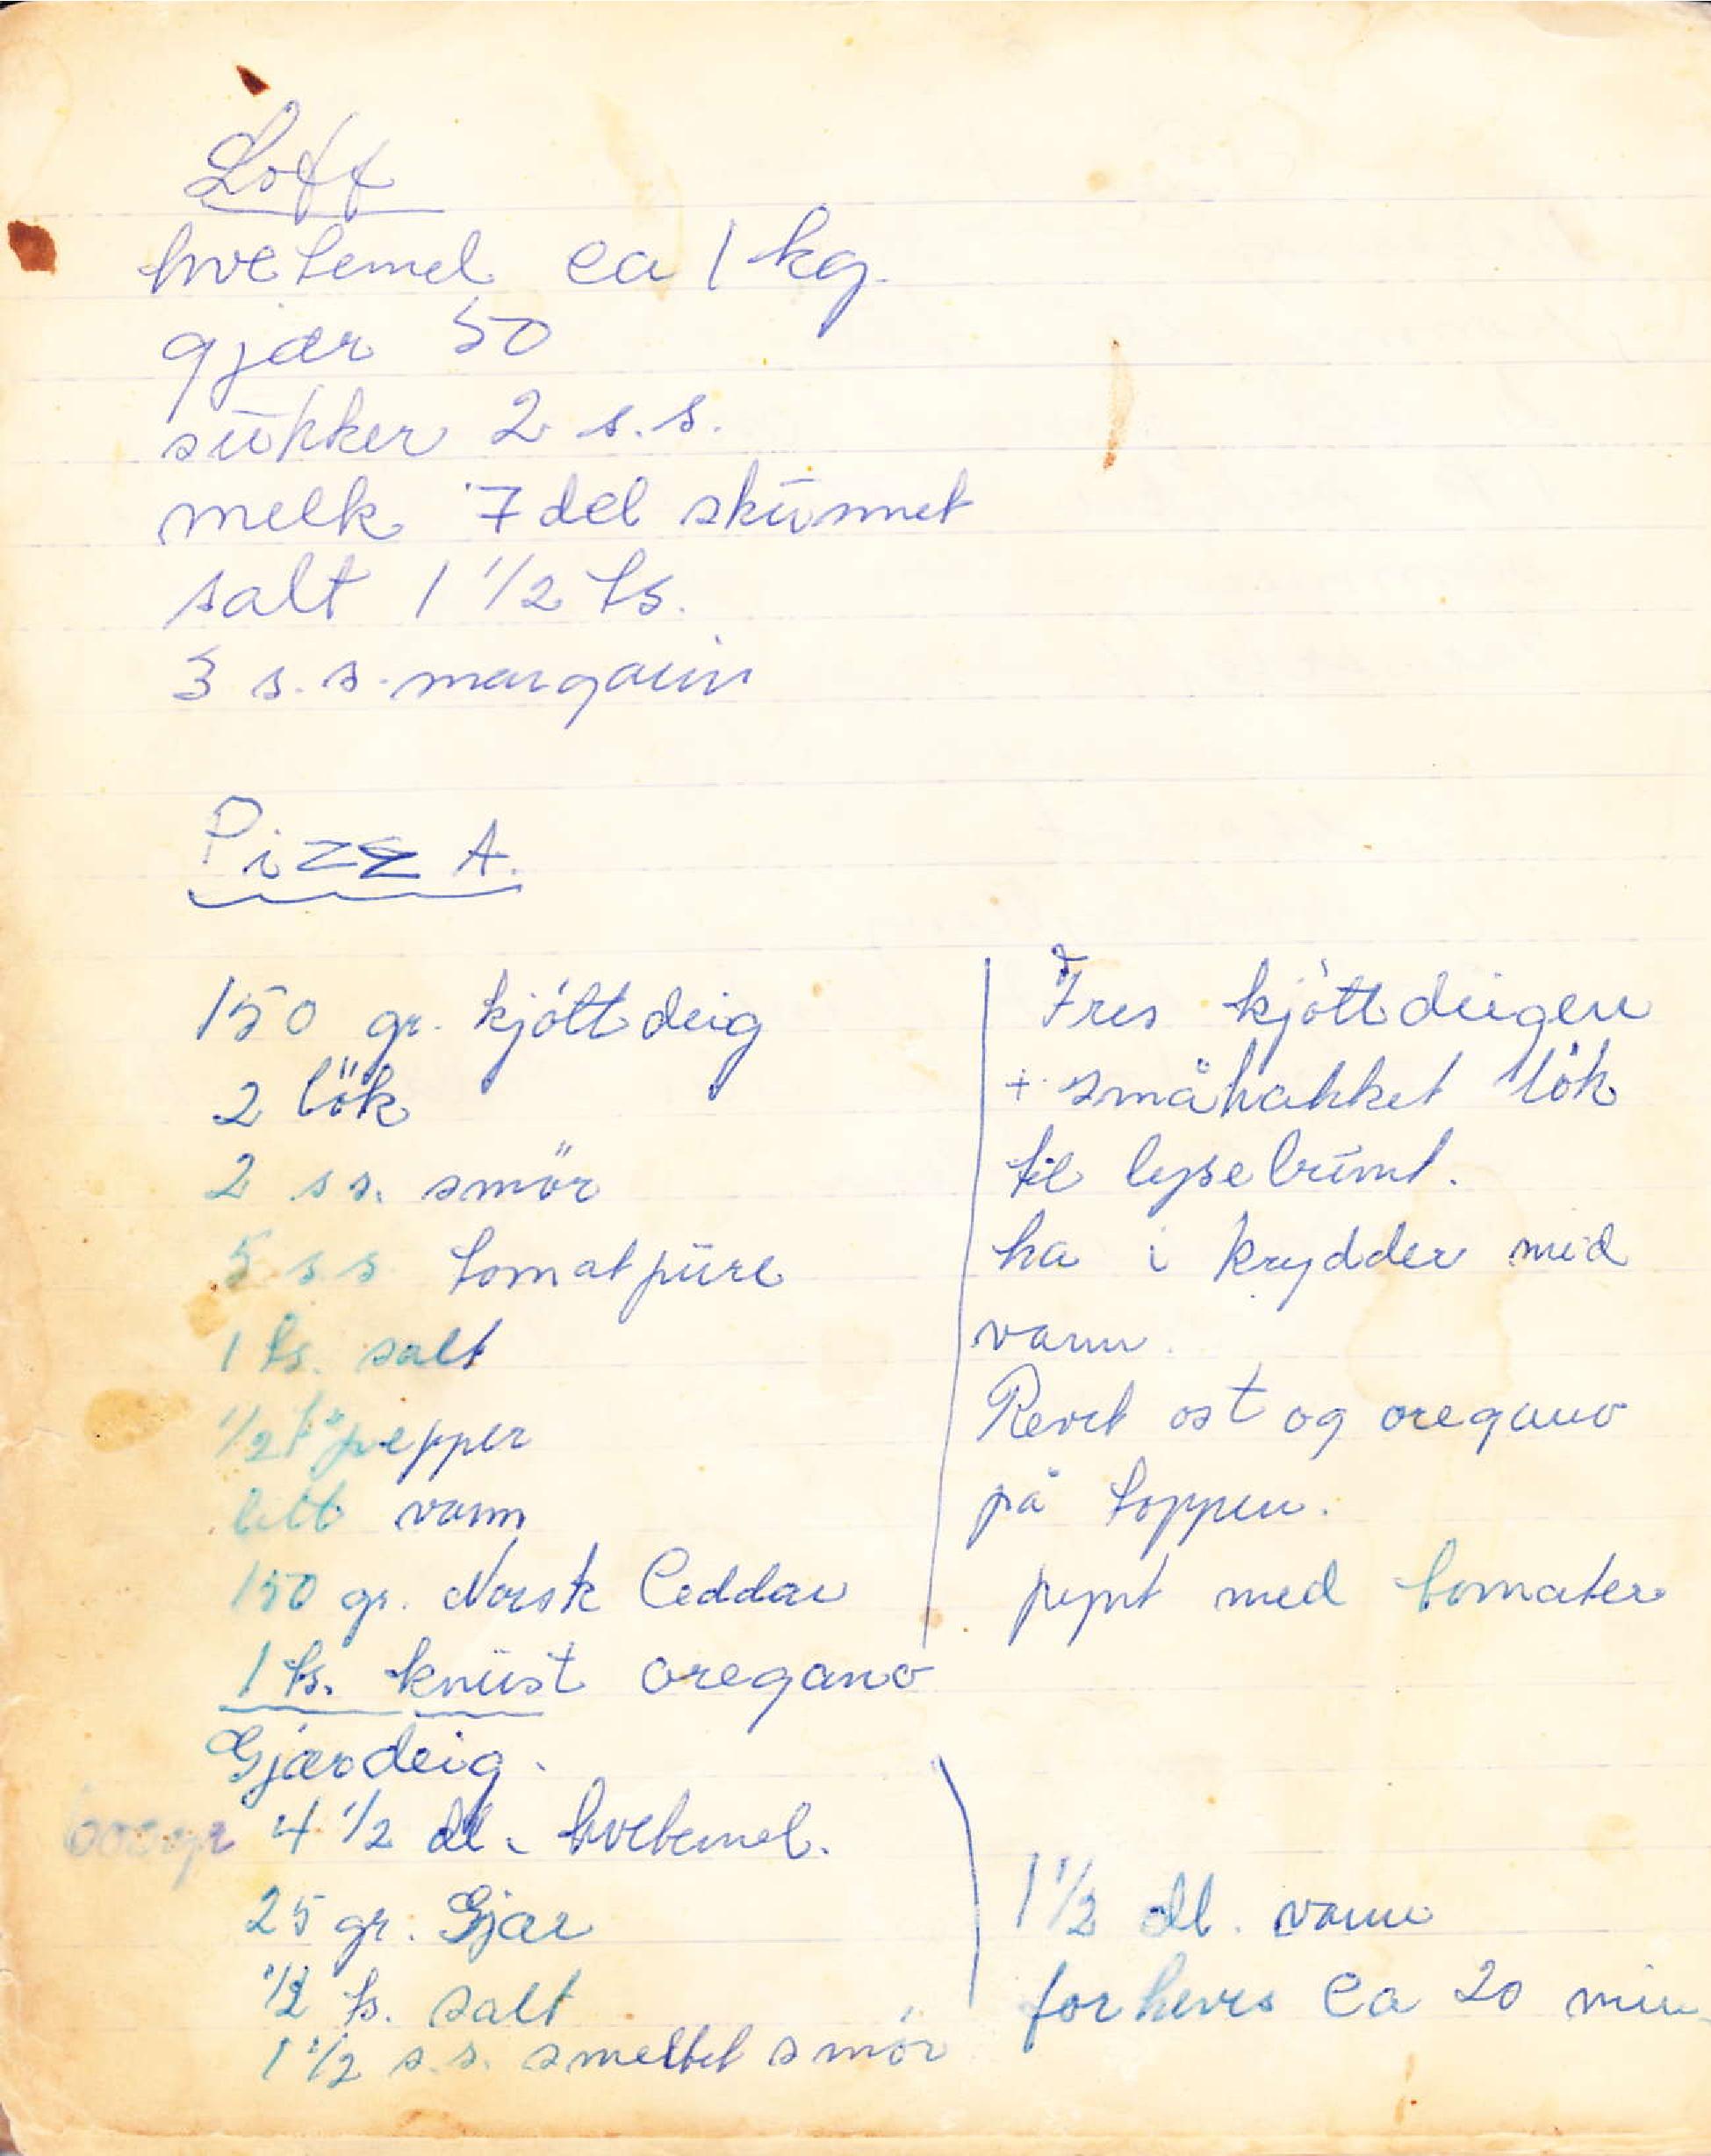 Loff
hvetemel ca 1 kg.
gjær 50
sukker 2 s.s.
melk 7 del skummet
salt 1 1/2 ts.
3 s.s. margarin
PizzA.
150 gr. kjöttdeig
2 lök
2 ss. smör
5 s s tomatpure
1 ts. salt
1/2 ts pepper
litt vann
150 gr. Norsk Ceddar
1 ts. knust oregano
Fres kjöttdeigen
+ småhakket lök
til lysebrunt.
ha i krydder med
vann.
Revet ost og oregano
på toppen.
pynt med tomater
Gjærdeig.
600 gr 4 1/2 dl. hvetemel.
25 gr. Gjær
1/2 ts. salt
1 1/2 s.s. smeltet smör
1 1/2 dl. vann
forheves ca 20 min.